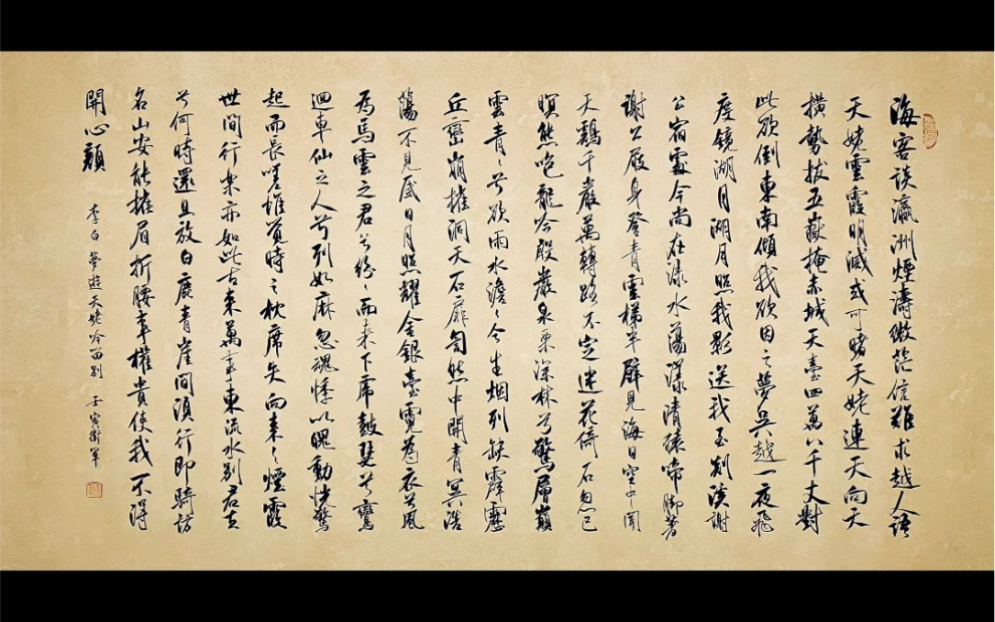 海客談瀛洲煙濤微茫信難求越人語
天姥雲霞明滅或可睹天姥連天向天
橫勢拔五嶽掩赤城天臺四萬八千丈對
此欲倒東南傾我欲因之夢吳越一夜飛
度镜湖月湖月照我影送我至剡溪謝
公宿處今尚在淥水蕩漾清猿啼腳著
謝公屐身登青雲梯半壁見海日空中聞
天鷄千巖萬轉路不定迷花倚石忽已
暝熊咆龍吟殷巖泉栗深林兮驚層巔
雲青〻兮欲雨水澹〻兮生烟列缺霹靂
丘巒崩摧洞天石扉訇然中開青冥浩
蕩不見底日月照耀金銀臺霓為衣兮風
為馬雲之君兮紛〻而來下虎鼓瑟兮鸞
迴車仙之人兮列如麻忽魂悸以魄動怳驚
起而長嗟惟覺時之枕席失向來之煙霞
世間行樂亦如此古來萬事東流水别君去
兮何時還且放白鹿青崖間須行即騎訪
名山安能摧眉折腰事權貴使我不得
開心顏
李白夢遊天姥吟留别 壬寅衛軍